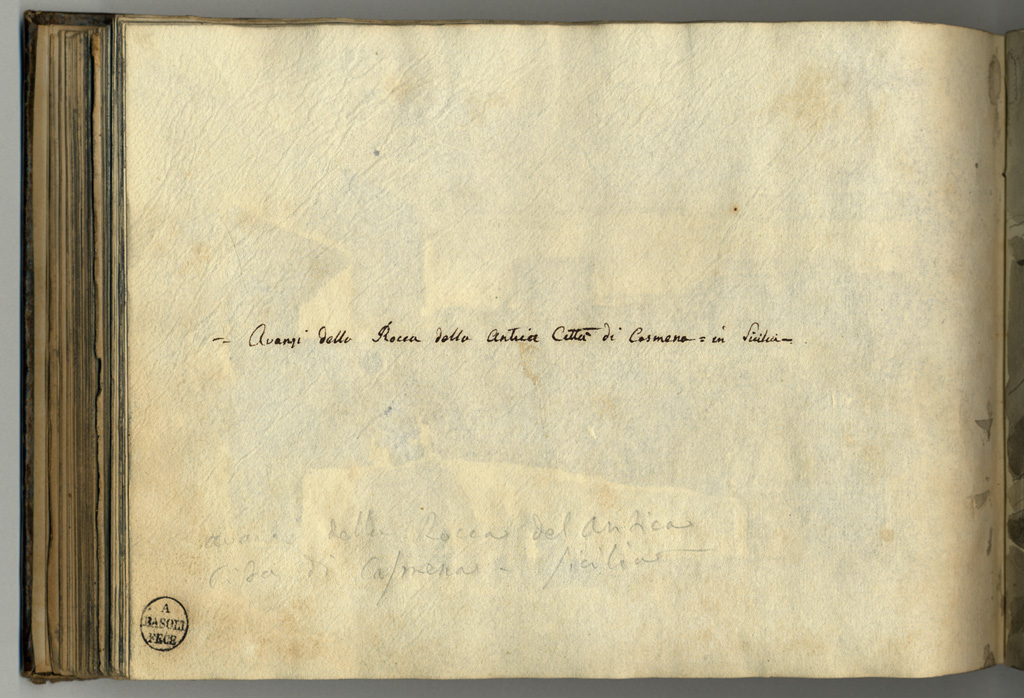 - Avanzi della Rocca della Antica Città di Casmena = in Sicilia -
avanzi della Rocca del Antica
Cita di Casmena - Sicilia
A
BASOLI
FECE